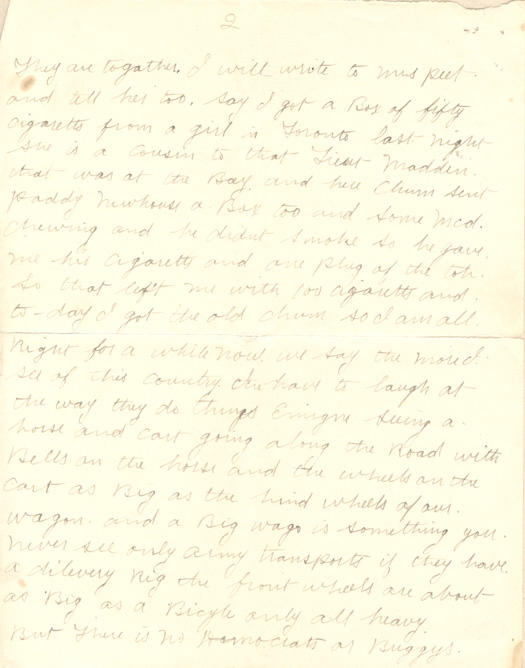 2
They are togather. I will write to Mrs Peet.
and tell her too. Say I got a Box of fifty
cigaretts from a girl in Toronto last night
she is a cousin to that Lieut Madden.
that was at the Bay. and her Chum sent
Paddy Newhouse a Box too and some Mcd.
Chewing and he didnt smoke so he gave.
me his cigaretts and one plug of the tob.
So that left me with 100 cigaretts and.
to-day I got the old chum so I am all.
right for a while now. we say the more I.
see of this country. I have to laugh at
the way they do things Emigne seeing a.
horse and cart going along the Road with
Bells on the horse and the wheels on the
cart as Big as the hind wheels of our.
wagon. and a Big wago is something you.
Never see only army transports if they have.
a dilevery Rig the front wheels are about
as Big as a Bicycle only all heavy
But There is no Homocrats or Buggys.